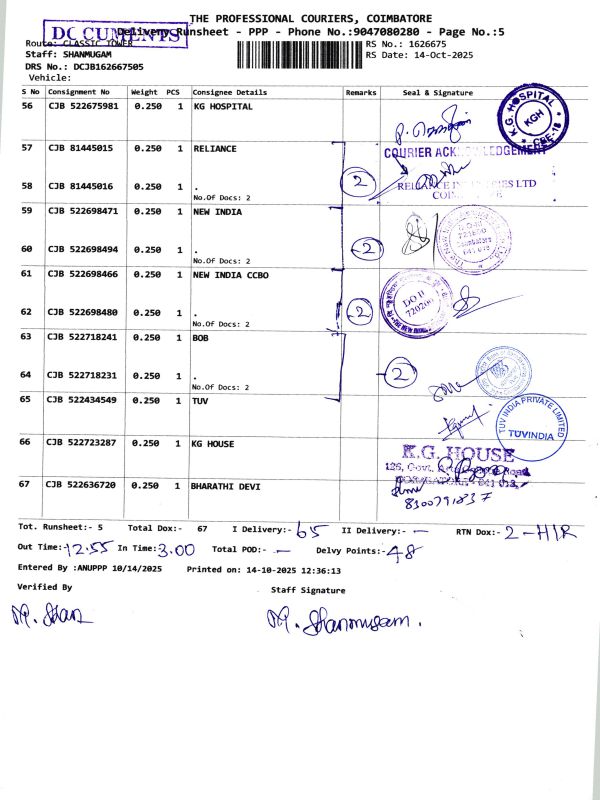 THE PROFESSIONAL COURIERS, COIMBATORE
DOCUMENTS
Delivery Runsheet - PPP - Phone No.:9047080280 - Page No.:5
Route: CLASSIC TOWER
RS No.: 1626675
Staff: SHANMUGAM
RS Date: 14-Oct-2025
DRS No.: DCJB162667505
Vehicle:
S No Consignment No Weight PCS Consignee Details Remarks Seal & Signature
56 CJB 522675981 0.250 1 KG HOSPITAL
K.G. HOSPITAL KGH CBE-18
57 CJB 81445015 0.250 1 RELIANCE
COURIER ACKNOWLEDGEMENT
58 CJB 81445016 0.250 1 .
2
RELIANCE INDUSTRIES LTD
No.Of Docs: 2
59 CJB 522698471 0.250 1 NEW INDIA
60 CJB 522698494 0.250 1 .
2
No.Of Docs: 2
61 CJB 522698466 0.250 1 NEW INDIA CCBO
62 CJB 522698480 0.250 1 .
2
No.Of Docs: 2
63 CJB 522718241 0.250 1 BOB
64 CJB 522718231 0.250 1 .
2
No.Of Docs: 2
65 CJB 522434549 0.250 1 TUV
TUV INDIA PRIVATE LIMITED
TUVINDIA
66 CJB 522723287 0.250 1 KG HOUSE
K.G. HOUSE
67 CJB 522636720 0.250 1 BHARATHI DEVI
Tot. Runsheet:- 5 Total Dox:- 67 I Delivery:- 65 II Delivery:- — RTN Dox:- 2-HIR
Out Time:-12.55 In Time:3.00 Total POD:- — Delvy Points:-48
Entered By :ANUPPP 10/14/2025 Printed on: 14-10-2025 12:36:13
Verified By
Staff Signature
M. Shan
M. Shanmugam.